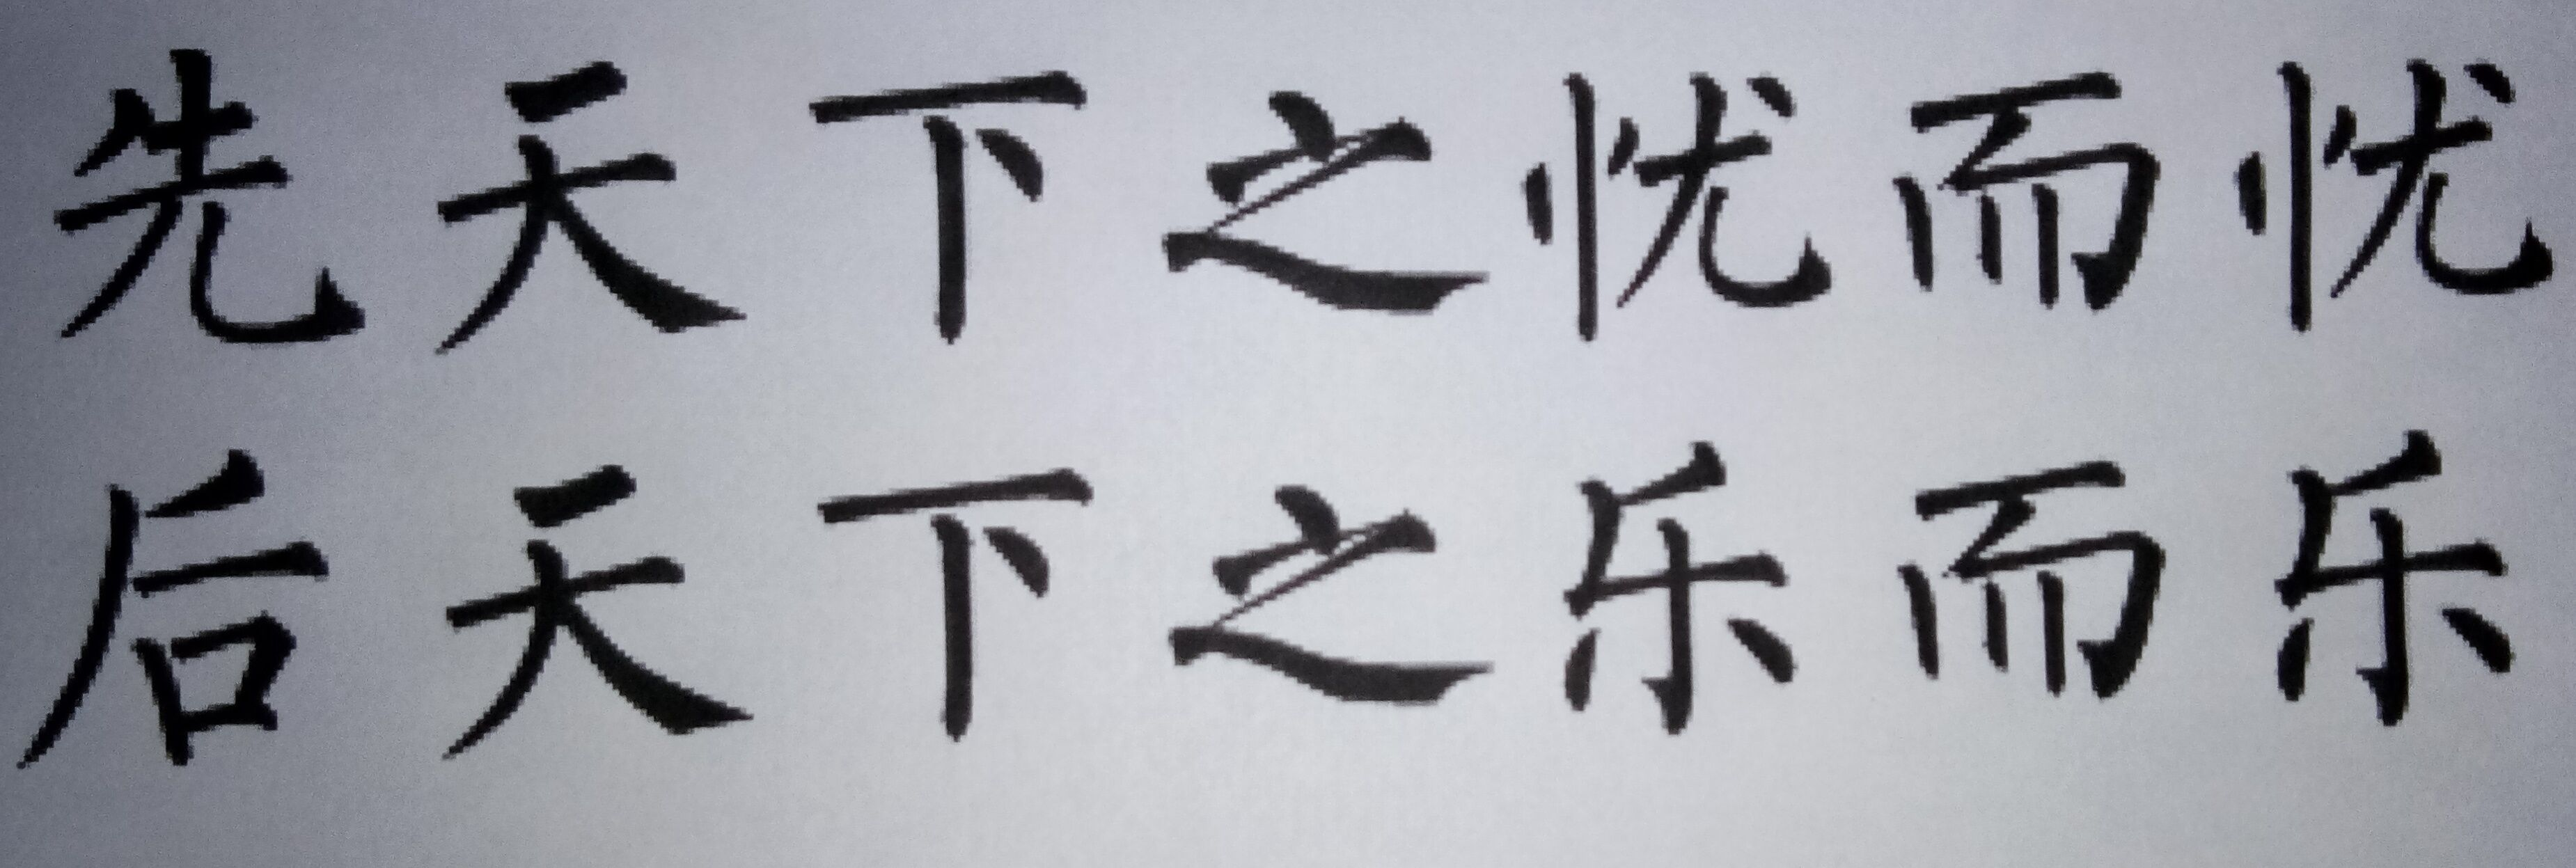 先天下之忧而忧
后天下之乐而乐